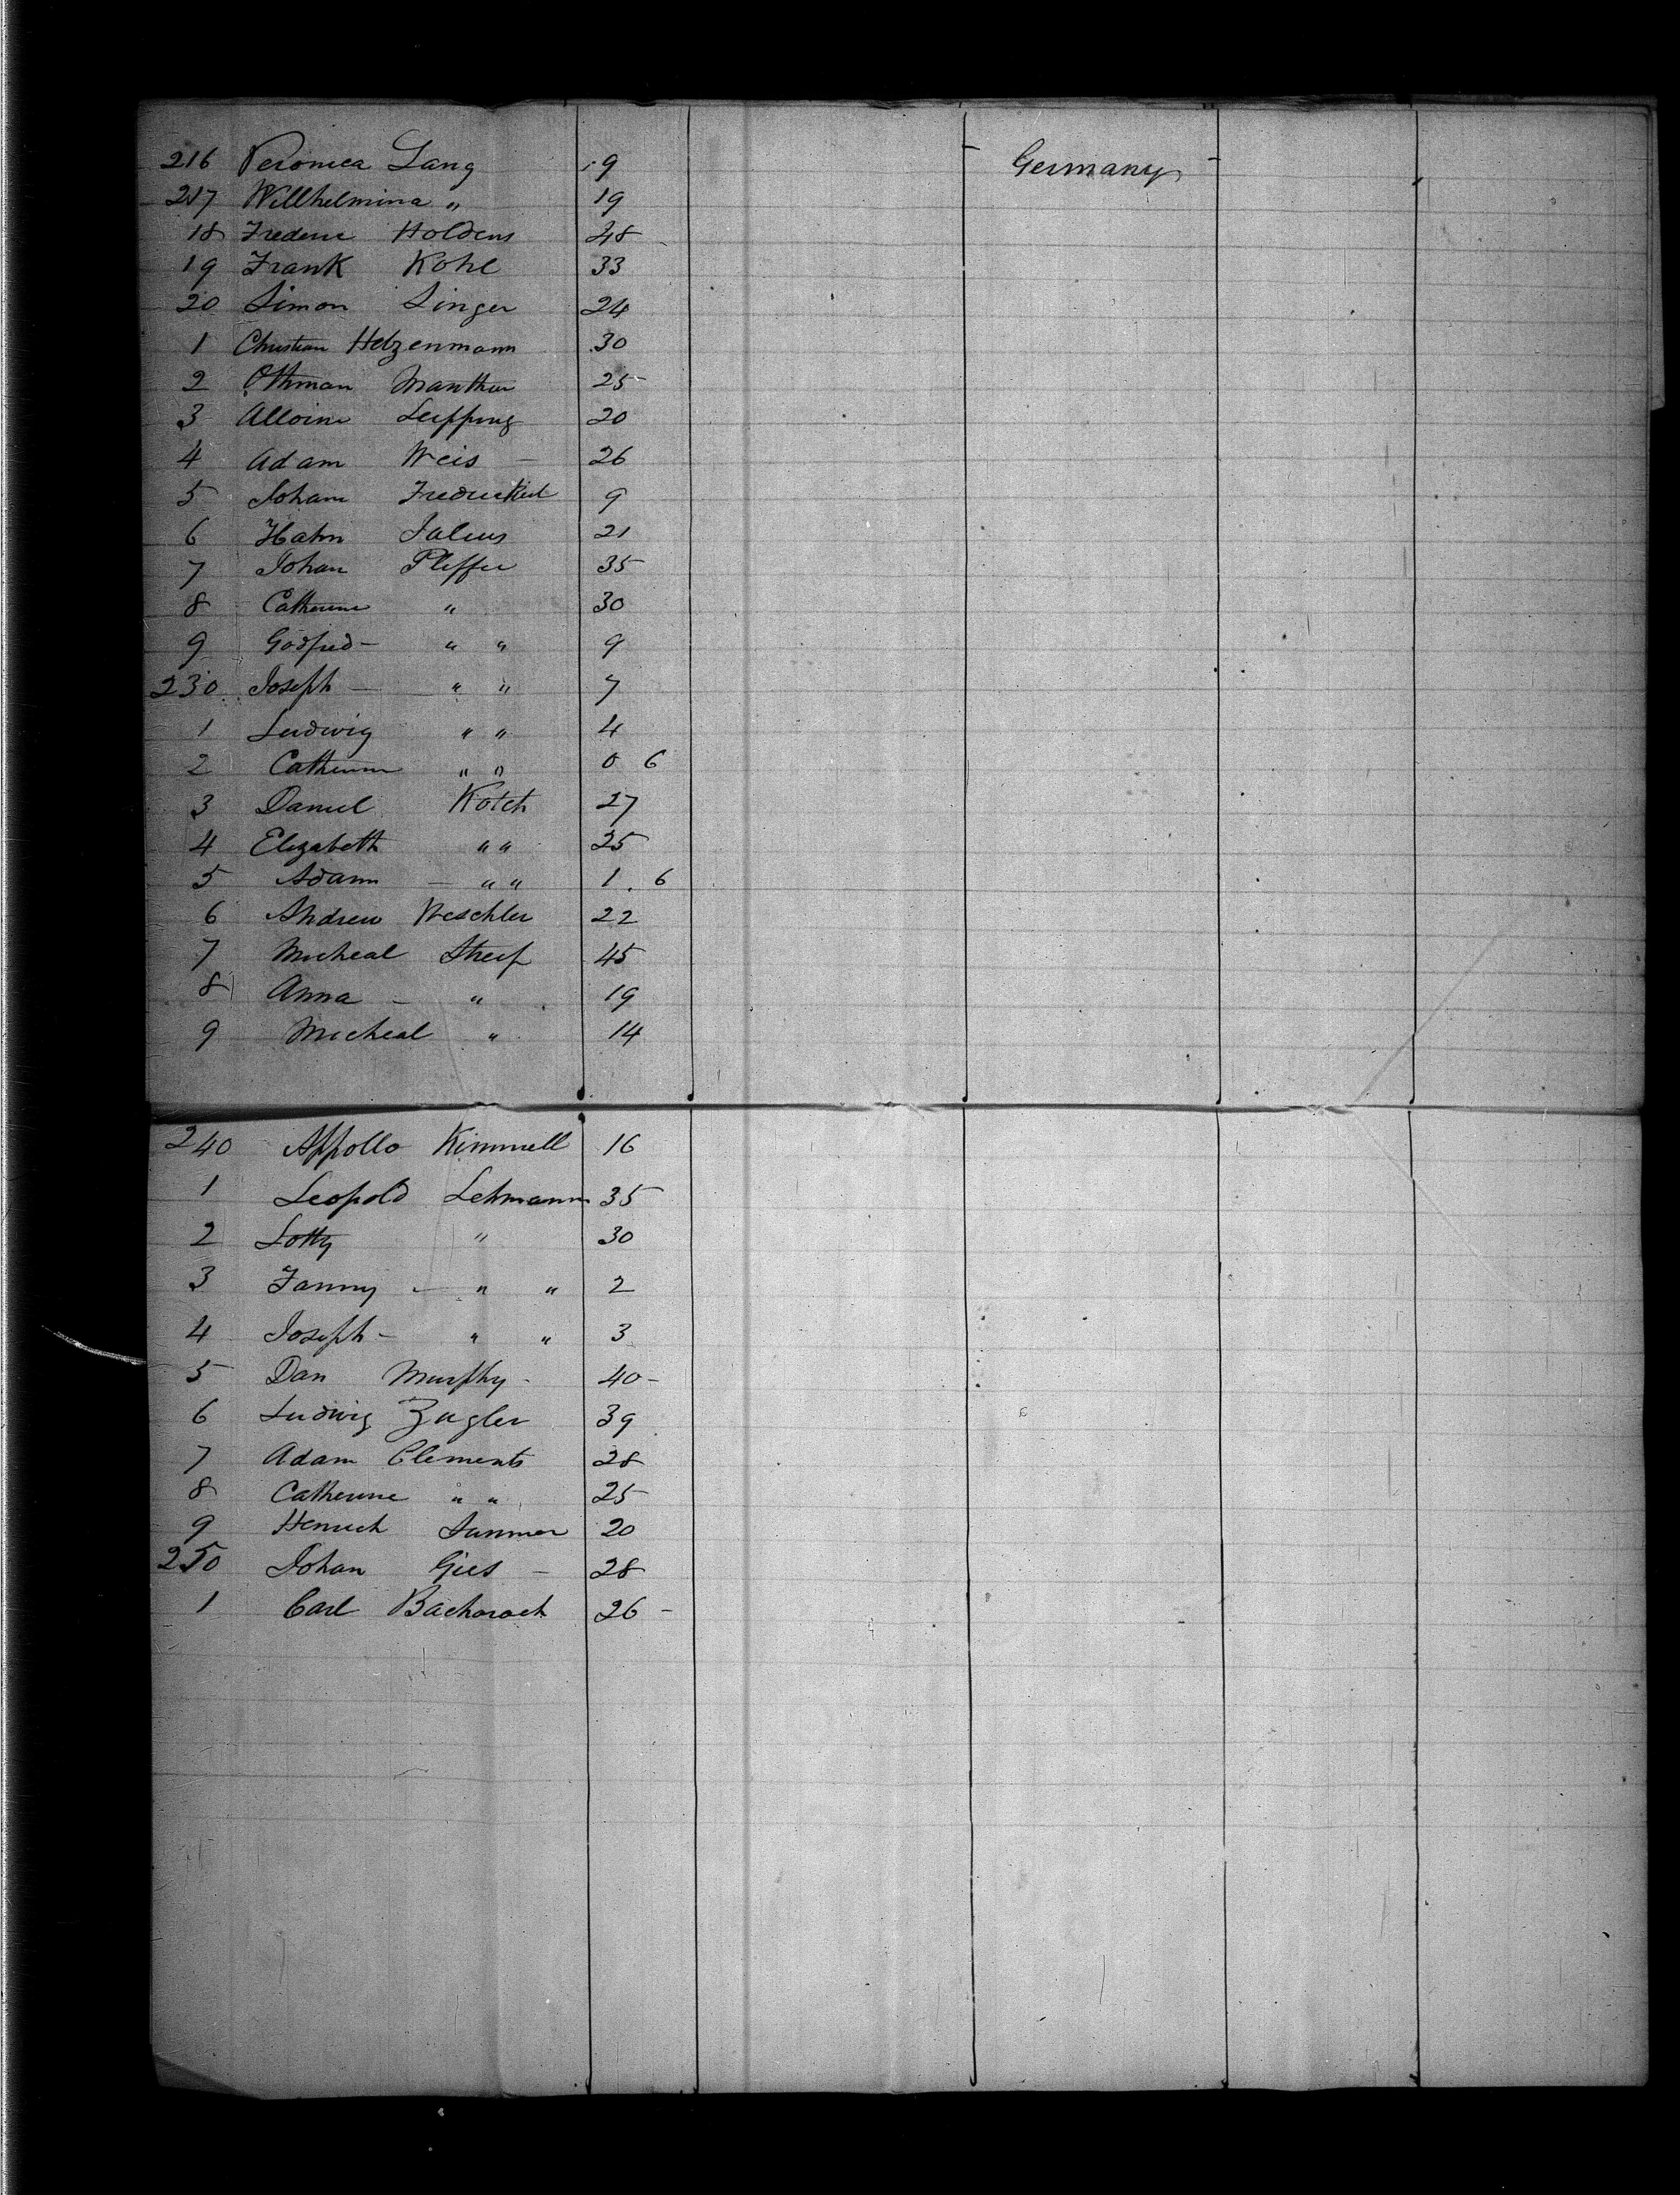 216 Veronica Lang 19 Germany
217 Willhelmina " 19
18 Holdens 48
19 Frank Kohl 33
20 Simon Singer 24
1 Christian Hetzenmann 30
2 Othman Manthur 25
3 20
4 Adam Weis - 26
5 Joham 9
6 Hahn Julius 21
7 Johan Pleffer 35
8 Catherine " 30
9 Godfred - " " 9
230 Joseph - " " 7
1 Ludwig " " 4
2 Catherine " " 0 6
3 Daniel Kotch 27
4 Elizabeth " " 25
5 Adam - " " 1 . 6
6 Andrew Weschler 22
7 Micheal Streif 45
8 Anna - " 19
9 Micheal " 14
240 Appollo Kimmell 16
1 Leopold Lehmann 35
2 Lotty " 30
3 Fanny - " " 2
4 Joseph - " " 3
5 Dan Murphy - 40 -
6 Ludwig Zugler 39
7 Adam Clements 28
8 Catherine " " 25
9 Henrich 20
250 Johan Gies - 28
1 Carl Bachorach 26 -